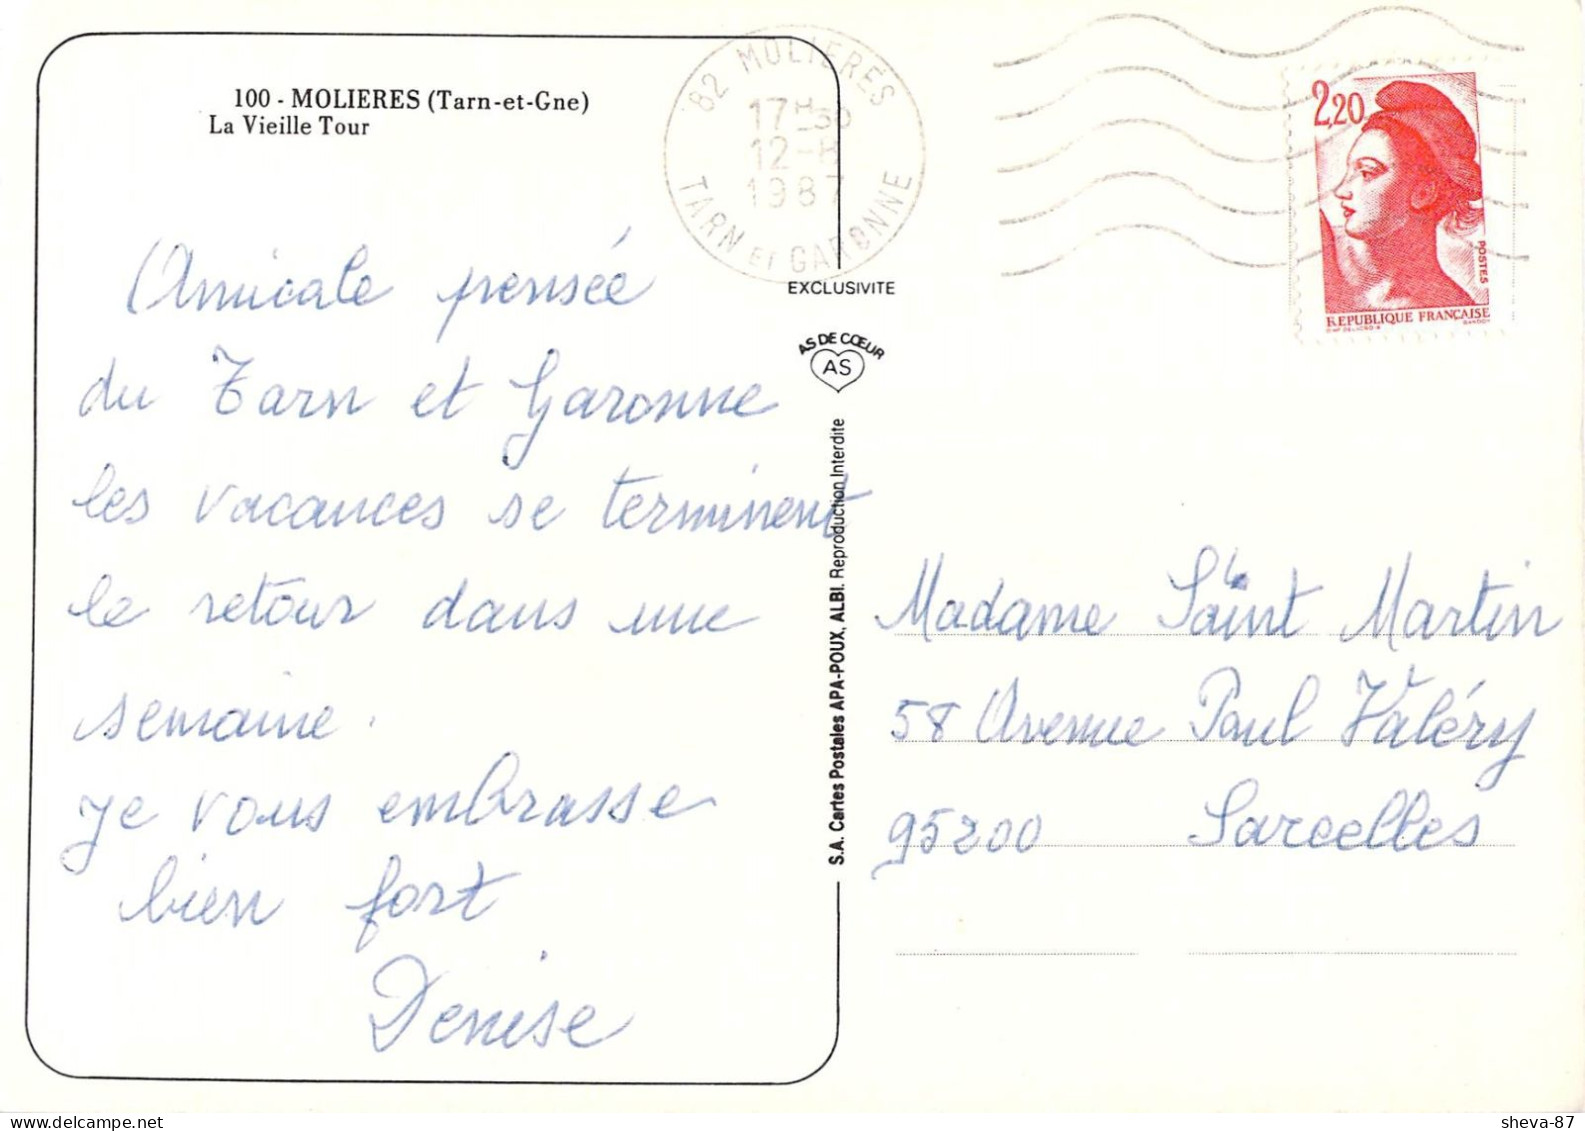 100 - MOLIERES (Tarn-et-Gne)
La Vieille Tour
Amicale pensée
du Tarn et Garonne
les vacances se terminent
le retour dans une
semaine.
je vous embrasse
bien fort
Denise
82 MOLIERES
17H30
12-8
1987
TARN ET GARONNE
EXCLUSIVITE
AS DE CŒUR
AS
S.A. Cartes Postales APA-POUX, ALBI. Reproduction Interdite
2,20
POSTES
REPUBLIQUE FRANÇAISE
GANDON
Madame Saint Martin
58 Avenue Paul Valéry
95200 Sarcelles
sheva-87